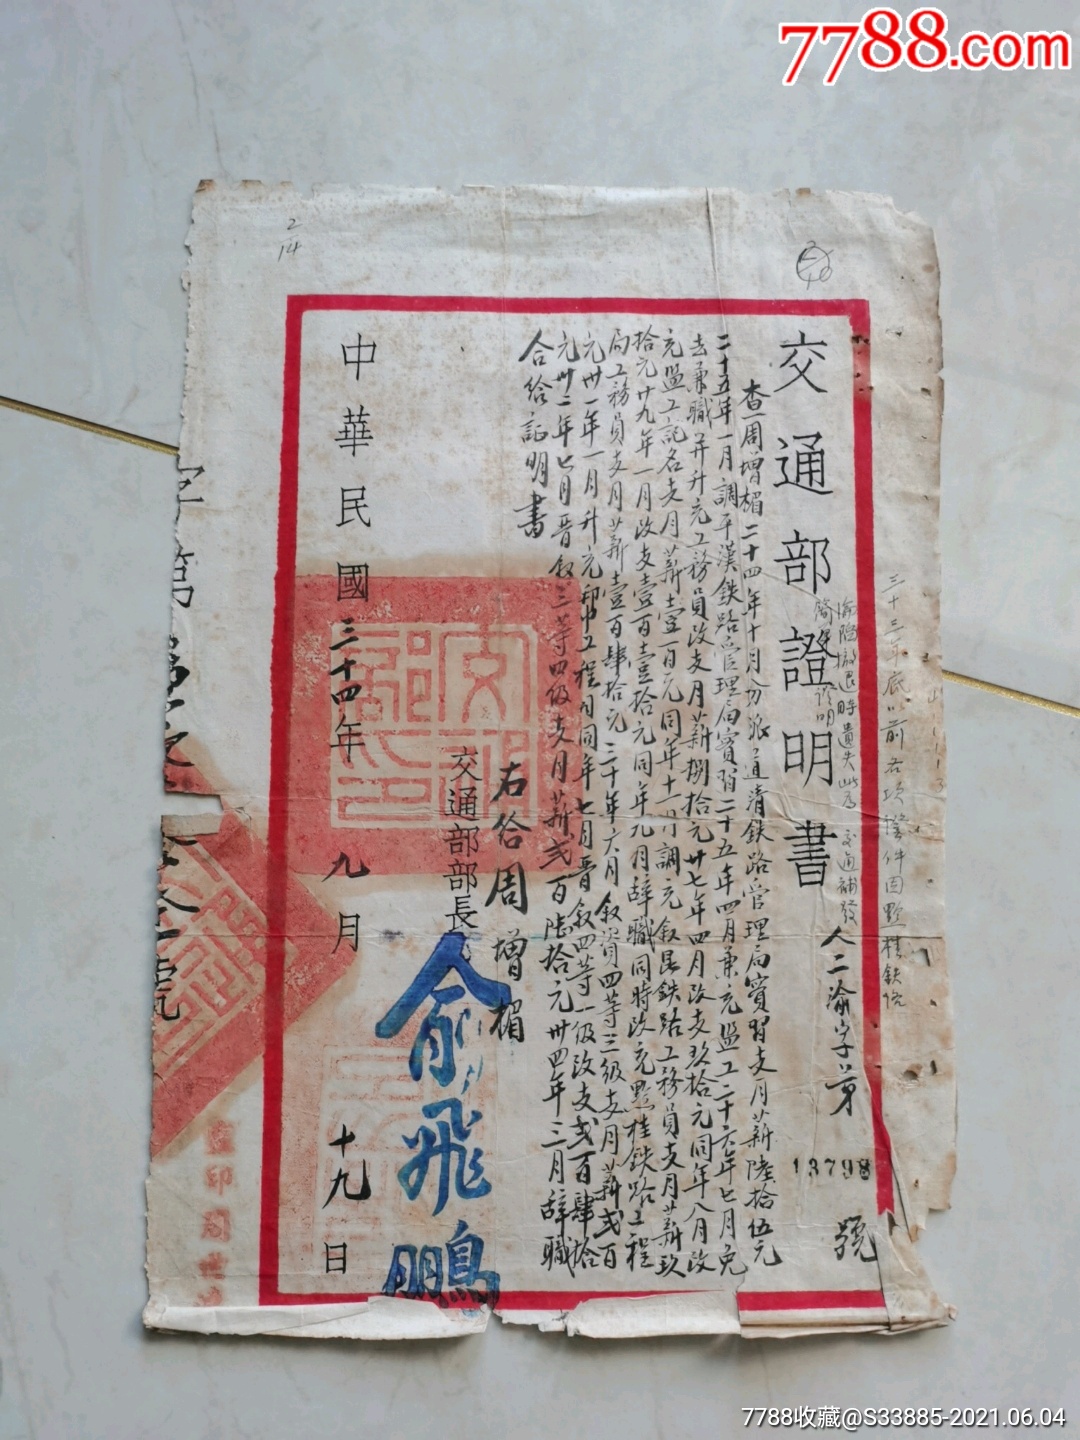 7788.com
2
14
交通部證明書
人二渝字第
13798
號
三十三年底以前右項證件因黔桂鐵路
淪陷撤退時遺失此為交通部補發
簡歷證明
查周增楣二十四年十月分派道清鉄路管理局實習支月薪陸拾伍元
二十五年一月調平漢鉄路管理局實習二十五年四月兼充監工二十六年七月免
去兼職并升充工務員改支月薪捌拾元廿七年四月改支玖拾元同年八月改
充監工記名支月薪壹百元同年十一月調充叙昆鉄路工務員支月薪玖
拾元廿九年一月改支壹百壹拾元同年九月辞職同時改充黔桂鉄路工程
局工務員支月薪壹百肆拾元三十年六月叙資四等三級支月薪弍百
元卅一年一月升充帮工程司同年七月晋叙四等一級改支弍百肆拾
元卅二年七月晋叙三等四級支月薪弍百陆拾元卅四年三月辞職
合給証明書
右给周增楣
交通部部長
俞飛鵬
中華民國三十四年九月十九日
字第
號
監印周
7788收藏@S33885-2021.06.04